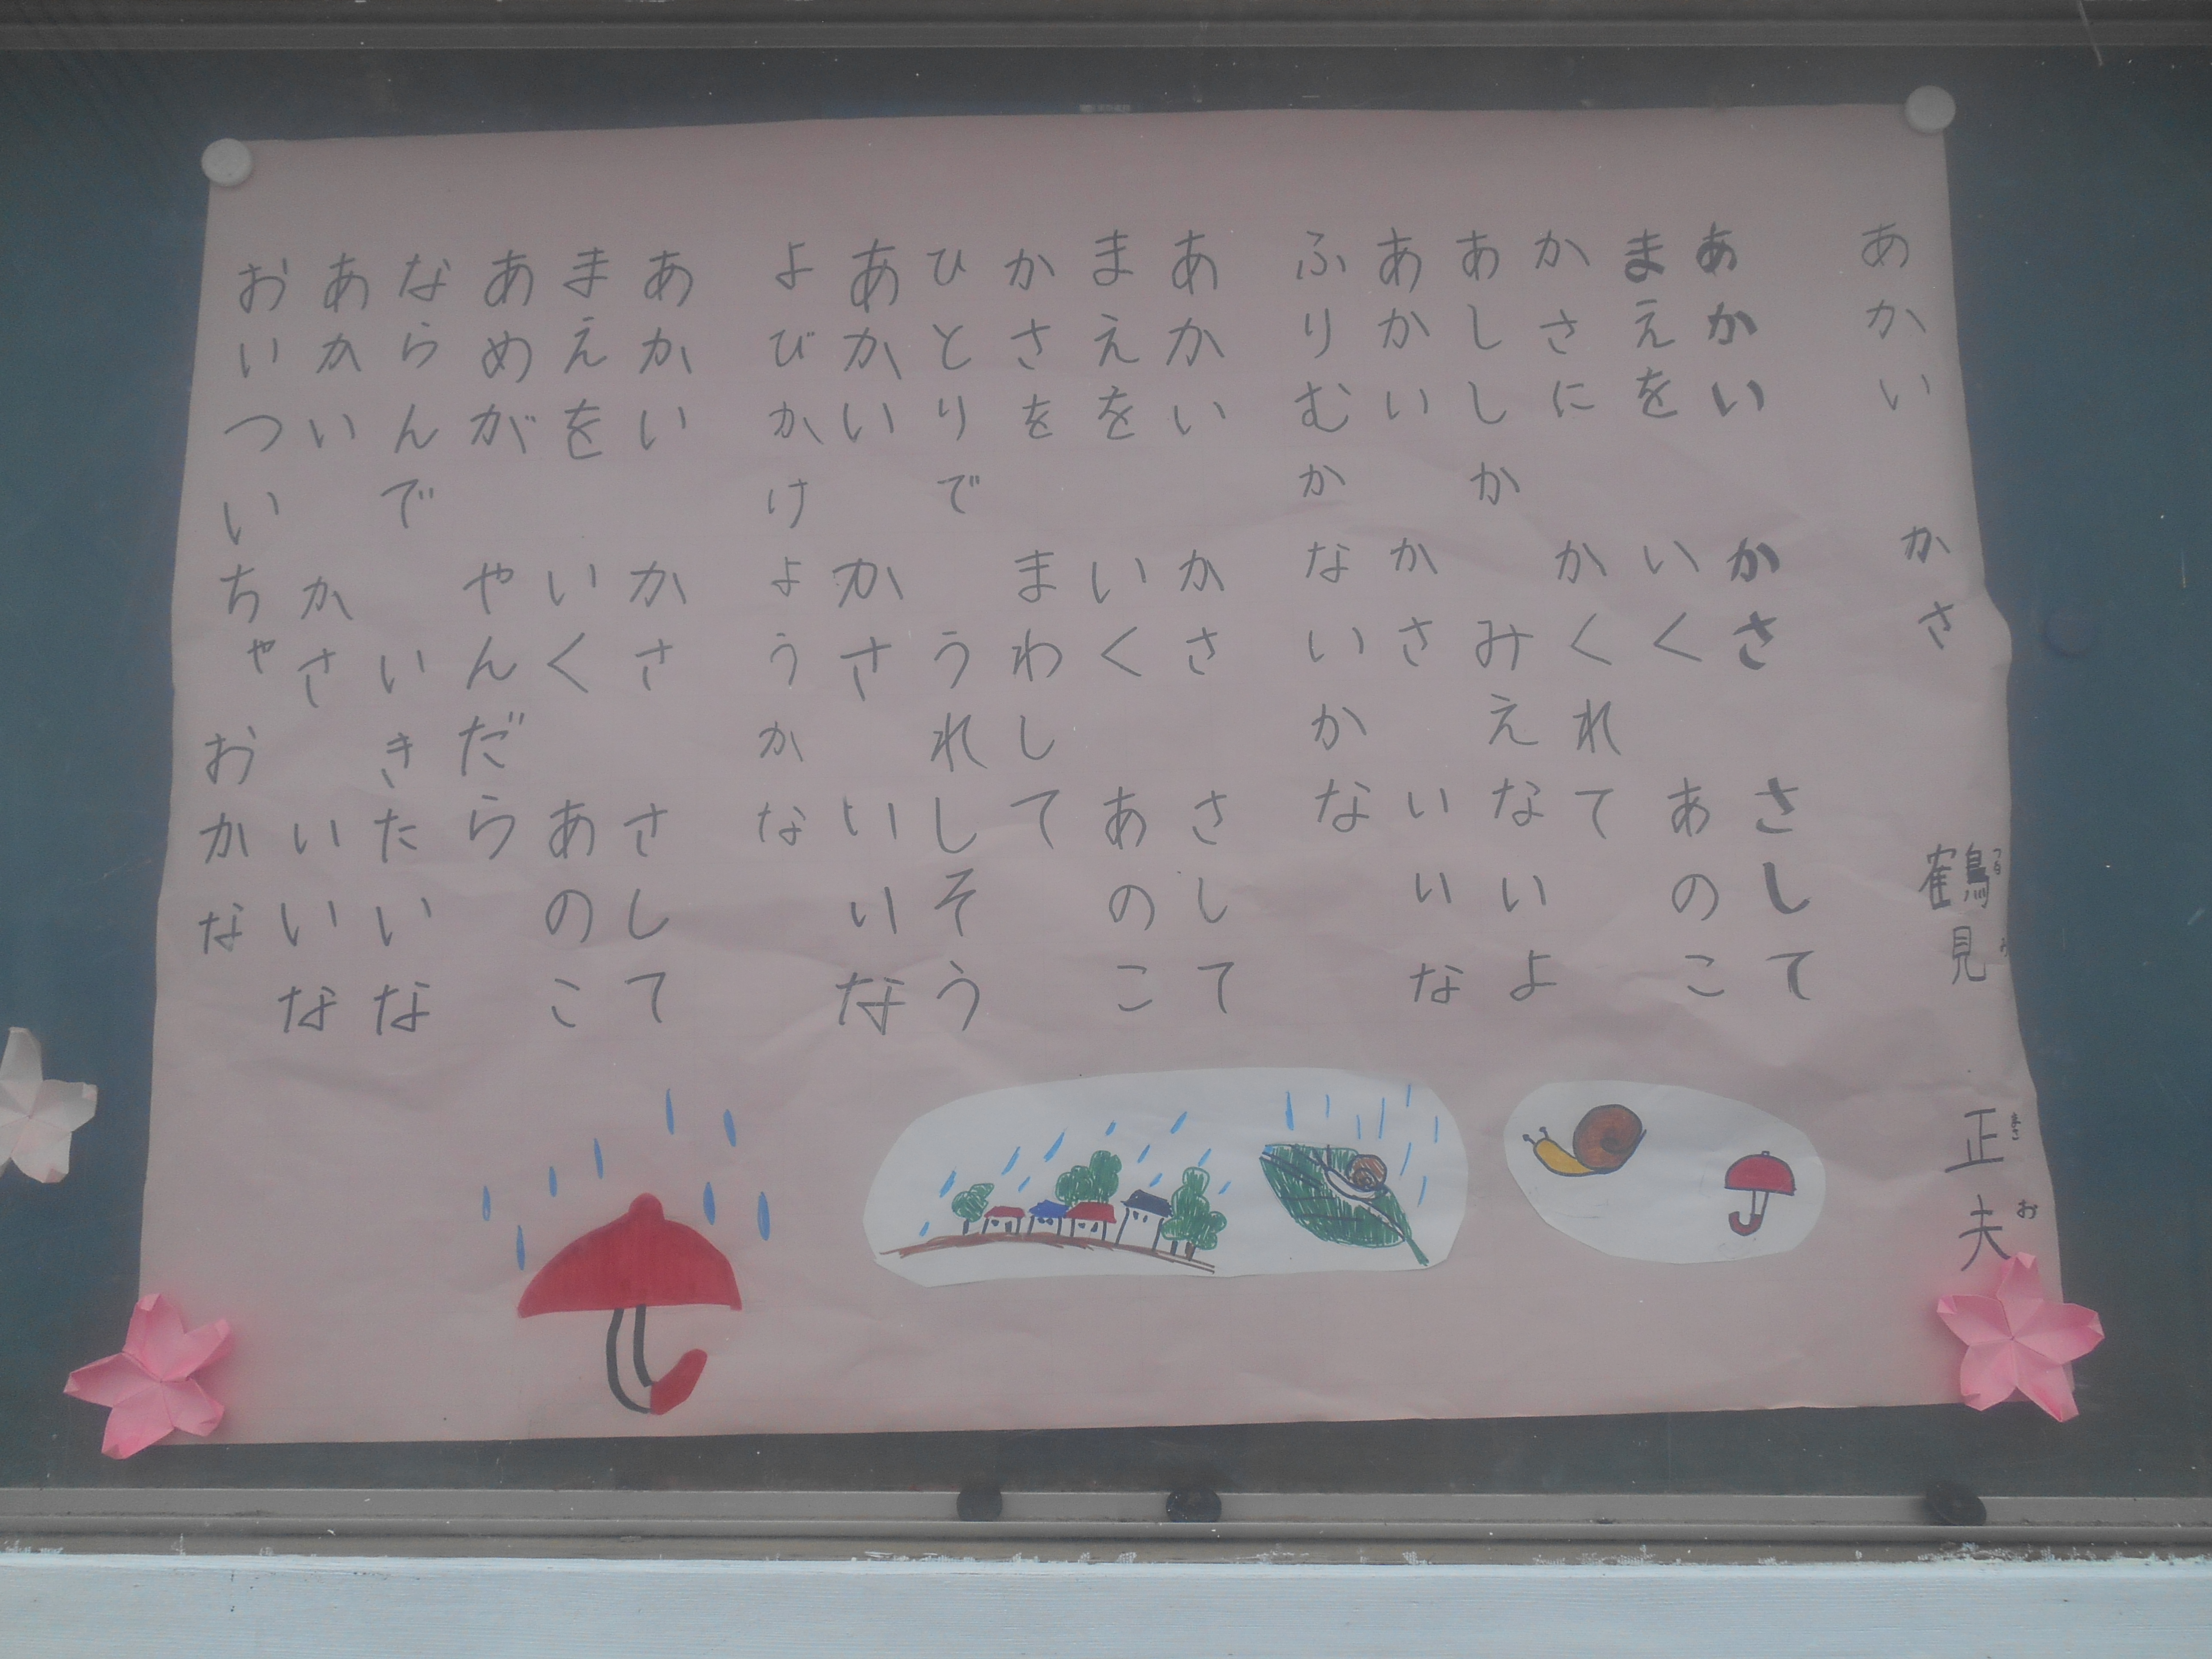 あかい かさ 鶴見 正夫
つる み まさ お
あかい かさ さして
まえを いく あのこ
かさに かくれて
あししか みえないよ
あかい かさ いいな
ふりむかないかな
あかい かさ さして
まえを いく あのこ
かさを まわして
ひとりで うれしそう
あかい かさ いいな
よびかけようかな
あかい かさ さして
まえを いく あのこ
あめが やんだら
ならんで いきたいな
あかい かさ いいな
おいついちゃおかな